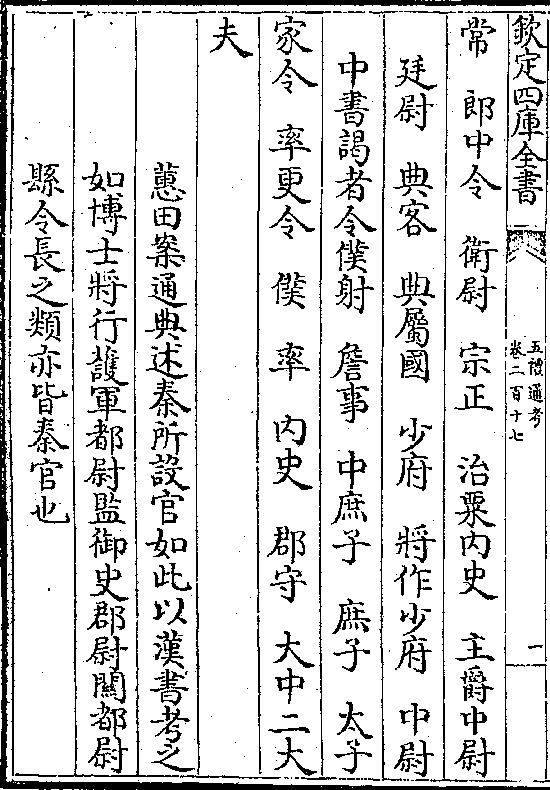 欽定四庫全書
五禮通考
卷二百十七
一
常 郎中令 衛尉 宗正 治粟内史 主爵中尉
廷尉 典客 典屬國 少府 將作少府 中尉
中書謁者令僕射 詹事 中庶子 庶子 太子
家令 率更令 僕 率 内史 郡守 大中二大
夫
蕙田案通典述秦所設官如此以漢書考之
如博士將行護軍都尉監御史郡尉關都尉
縣令長之類亦皆秦官也